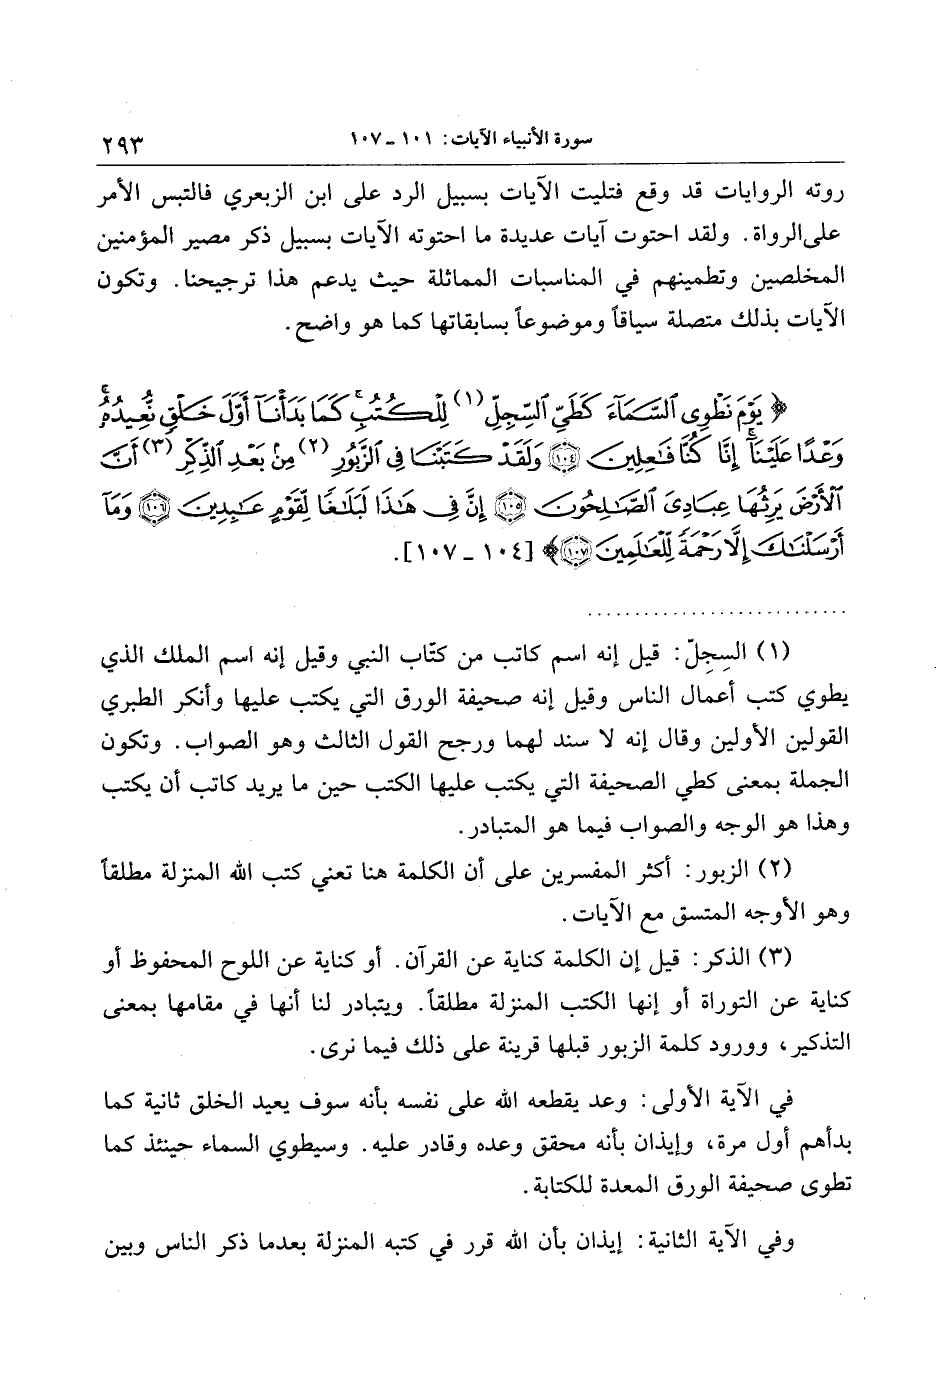 سورة الأنبياء الآيات: ١٠١ ـ ١٠٧
٢٩٣
روته الروايات قد وقع فتليت الآيات بسبيل الرد على ابن الزبعري فالتبس الأمر
على الرواة. ولقد احتوت آيات عديدة ما احتوته الآيات بسبيل ذكر مصير المؤمنين
المخلصين وتطمينهم في المناسبات المماثلة حيث يدعم هذا ترجيحنا. وتكون
الآيات بذلك متصلة سياقاً وموضوعاً بسابقاتها كما هو واضح.
﴿ يَوْمَ نَطْوِي السَّمَاءَ كَطَيِّ السِّجِلِّ (١) لِلْكُتُبِ كَمَا بَدَأْنَا أَوَّلَ خَلْقٍ نُّعِيدُهُ
وَعْدًا عَلَيْنَا إِنَّا كُنَّا فَاعِلِينَ ١٠٤ وَلَقَدْ كَتَبْنَا فِي الزَّبُورِ (٢) مِنْ بَعْدِ الذِّكْرِ (٣) أَنَّ
الْأَرْضَ يَرِثُهَا عِبَادِيَ الصَّالِحُونَ ١٠٥ إِنَّ فِي هَٰذَا لَبَلَاغًا لِّقَوْمٍ عَابِدِينَ ١٠٦ وَمَا
أَرْسَلْنَاكَ إِلَّا رَحْمَةً لِّلْعَالَمِينَ ١٠٧ ﴾ [١٠٤ ـ ١٠٧].
(١) السِجِلّ: قيل إنه اسم كاتب من كتّاب النبي وقيل إنه اسم الملك الذي
يطوي كتب أعمال الناس وقيل إنه صحيفة الورق التي يكتب عليها وأنكر الطبري
القولين الأولين وقال إنه لا سند لهما ورجح القول الثالث وهو الصواب. وتكون
الجملة بمعنى كطي الصحيفة التي يكتب عليها الكتب حين ما يريد كاتب أن يكتب
وهذا هو الوجه والصواب فيما هو المتبادر.
(٢) الزبور: أكثر المفسرين على أن الكلمة هنا تعني كتب الله المنزلة مطلقاً
وهو الأوجه المتسق مع الآيات.
(٣) الذكر: قيل إن الكلمة كناية عن القرآن. أو كناية عن اللوح المحفوظ أو
كناية عن التوراة أو إنها الكتب المنزلة مطلقاً. ويتبادر لنا أنها في مقامها بمعنى
التذكير، وورود كلمة الزبور قبلها قرينة على ذلك فيما نرى.
في الآية الأولى: وعد يقطعه الله على نفسه بأنه سوف يعيد الخلق ثانية كما
بدأهم أول مرة، وإيذان بأنه محقق وعده وقادر عليه. وسيطوي السماء حينئذ كما
تطوى صحيفة الورق المعدة للكتابة.
وفي الآية الثانية: إيذان بأن الله قرر في كتبه المنزلة بعدما ذكر الناس وبين